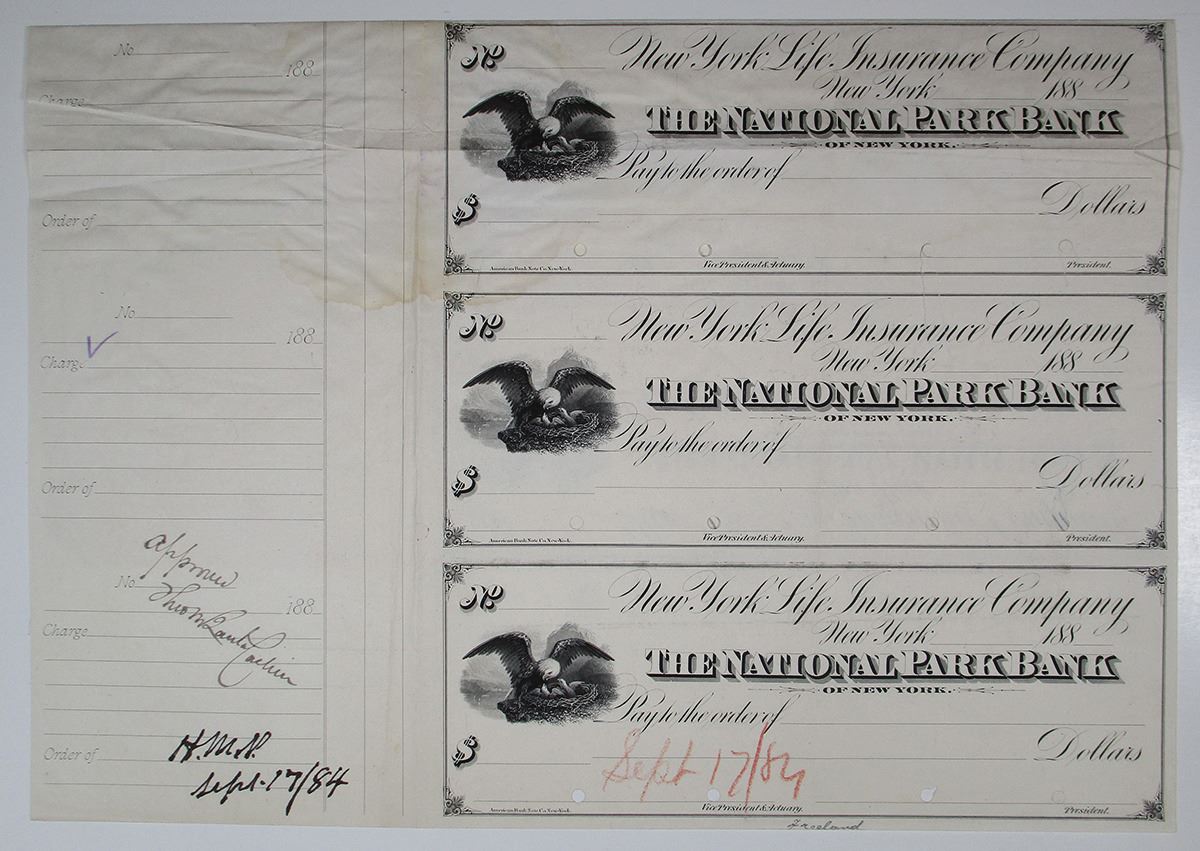 No
188
Charge
Order of
No
New York Life Insurance Company
New York 188
THE NATIONAL PARK BANK
OF NEW YORK.
Pay to the order of
$ Dollars
American Bank Note Co. New York.
Vice President & Actuary.
President.
No
188
Charge
Order of
No
New York Life Insurance Company
New York 188
THE NATIONAL PARK BANK
OF NEW YORK.
Pay to the order of
$ Dollars
American Bank Note Co. New York.
Vice President & Actuary.
President.
approved
No
188
Charge
Cashier
Order of
H.M.P.
Sept. 17/84
No
New York Life Insurance Company
New York 188
THE NATIONAL PARK BANK
OF NEW YORK.
Pay to the order of
$ Dollars
Sept 17/84
American Bank Note Co. New York.
Vice President & Actuary.
President.
Freeland